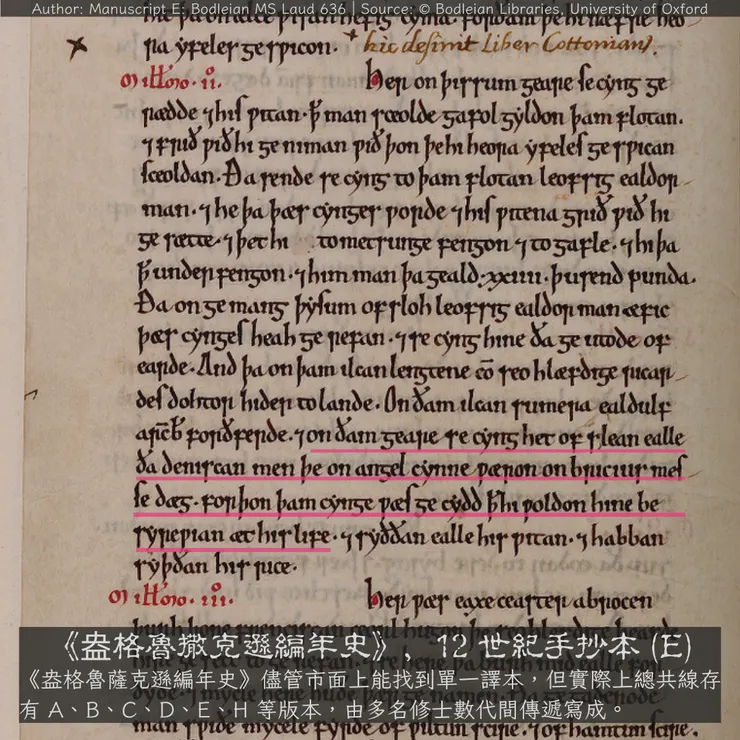 Author: Manuscript E: Bodleian MS Laud 636 | Source: © Bodleian Libraries, University of Oxford
on ælce ƿisan hefig tyma. forðam þe hi næfre heo
ra yfeles gesƿicon. hic desinit Liber Cottonian⁹.
Millmo. ii. Her on þissum geare se cyng ge
rædde ⁊ his ƿitan. ꝥ man sceolde gafol gyldon þam flotan.
⁊ frið ƿið hi ge niman ƿið þon þe hi heora yfeles gesƿican
sceoldan. Ða sende se cyng to þam flotan leofsig ealdor
man. ⁊ he þa þæs cynges ƿorde ⁊ his ƿitena grið ƿið hi
ge sætte. ⁊ þet hi to metsunge fengon ⁊ to gafle. ⁊ hi þa
ꝥ under fengon. ⁊ him man þa geald. xxiiii. þusend punda.
Ða on ge mang þysum ofsloh leofsig ealdor man æfic
þæs cynges heah ge refan. ⁊ se cyng hine ða ge utode of
earde. And þa on þam ilcan lengtene cō seo hlæfdige ricar
des dohtor hider to lande. On ðam ilcan sumera ealdulf
arc̄b forðferde. ⁊ on ðam geare se cyng het of slean ealle
ða deniscan men þe on angel cynne ƿæron on bricius mes
se dæg. forþon þam cynge ƿæs ge cydd ꝥ hi ƿoldon hine be
syreƿian æt his life. ⁊ syððan ealle his ƿitan. ⁊ habban
syþðan his rice.
Millmo. iii. Her ƿæs eaxe ceaster abrocen
《盎格魯撒克遜編年史》, 12 世紀手抄本 (E)
《盎格魯薩克遜編年史》儘管市面上能找到單一譯本，但實際上總共線存
有 A、B、C、D、E、H 等版本，由多名修士數代間傳遞寫成。